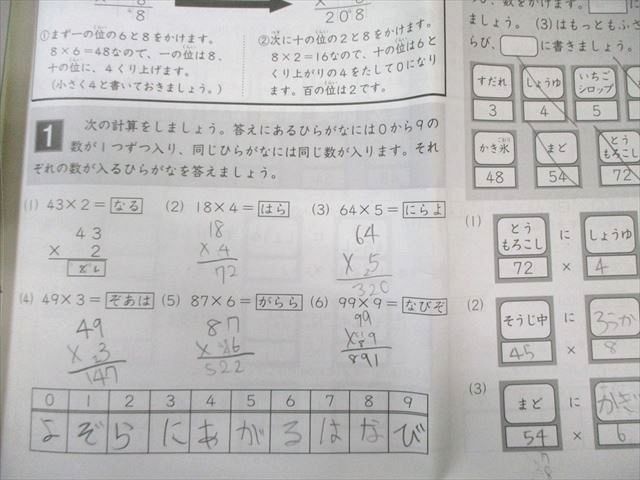 8
208
①まず一の位の6と8をかけます。
8×6＝48なので、一の位は8、
十の位に、4くり上げます。
(小さく4と書いておきましょう。)
②次に十の位の2と8をかけます。
8×2＝16なので、十の位は6と
くり上がりの4をたして0になり
ます。百の位は2です。
1 次の計算をしましょう。答えにあるひらがなには0から9の
数が1つずつ入り、同じひらがなには同じ数が入ります。それ
ぞれの数が入るひらがなを答えましょう。
(1) 43×2＝なる (2) 18×4＝はら (3) 64×5＝にらよ
43 18 64
× 2 × 4 × 5
86 72 320
(4) 49×3＝ぞあは (5) 87×6＝がらら (6) 99×9＝なびぞ
49 87 99
× 3 × 6 × 9
147 522 891
0 1 2 3 4 5 6 7 8 9
よ ぞ ら に あ が る は な び
の、数をかけます。
ましょう。(3)はもっともふさ
らび、 に書きましょう。
すだれ しょうゆ いちごシロップ
3 4 5
かき氷 まど とうもろこし
48 54 72
(1)
とうもろこし に しょうゆ
72 × 4
(2)
そうじ中 に ろうか
45 × 8
(3)
まど に かぎ
54 × 6